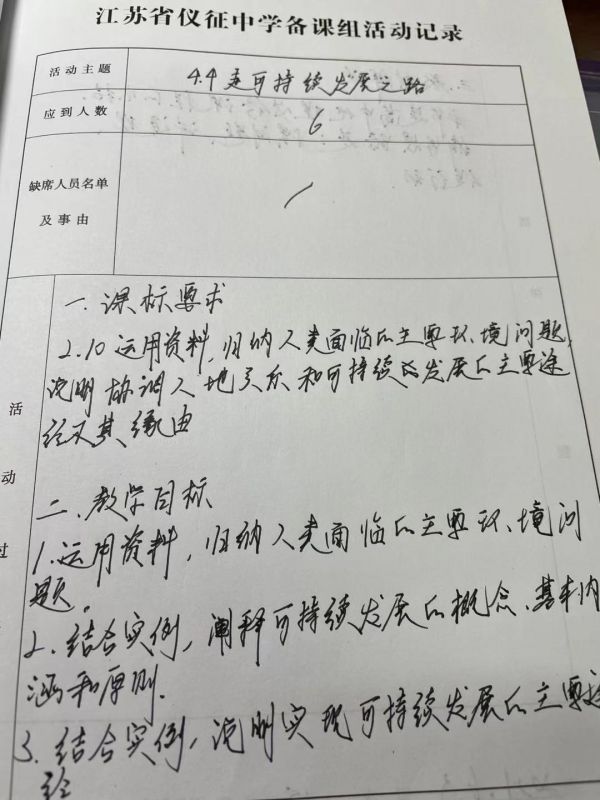 江苏省仪征中学备课组活动记录
活动主题
4.4走可持续发展之路
应到人数
6
缺席人员名单
及事由
/
活
动
过
一.课标要求
2.10 运用资料,归纳人类面临的主要环境问题,
说明协调人地关系和可持续发展的主要途
径及其缘由
二.教学目标
1.运用资料,归纳人类面临的主要环境问
题。
2.结合实例,阐释可持续发展的概念、基本内
涵和原则.
3.结合实例,说明实现可持续发展的主要途
径